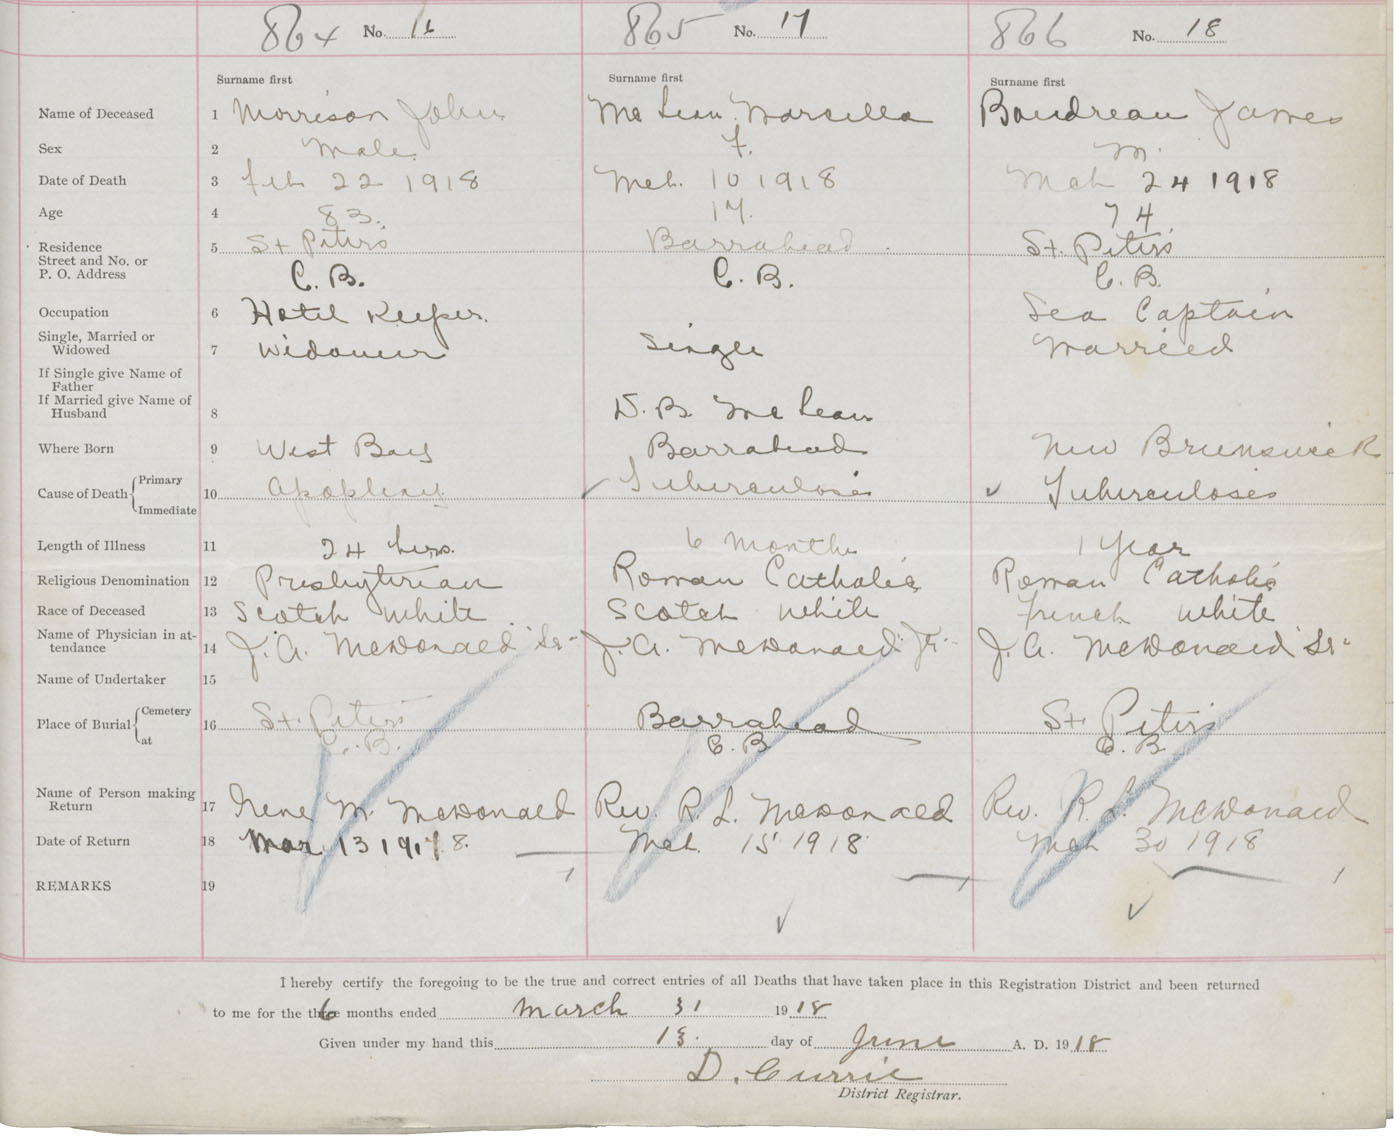 864 No. 16 865 No. 17 866 No. 18
Surname first Surname first Surname first
Name of Deceased 1 Morrison John McLean Marcella Boudreau James
Sex 2 Male. F. M.
Date of Death 3 Feb 22 1918 Mch. 10 1918 Mch 24 1918
Age 4 83. 17. 74
Residence 5 St Peters Barrahead. St. Peters
Street and No. or
P. O. Address C. B. C. B. C. B.
Occupation 6 Hotel Keeper. Sea Captain
Single, Married or
Widowed 7 Widower Single Married
If Single give Name of
Father
If Married give Name of
Husband 8 D. B. McLean
Where Born 9 West Bay Barrahead New Brunswick
Cause of Death { Primary
10 Apoplexy Tuberculosis Tuberculosis
Immediate
Length of Illness 11 24 hrs. 6 Months 1 Year
Religious Denomination 12 Presbyterian Roman Catholic Roman Catholic
Race of Deceased 13 Scotch White Scotch White French White
Name of Physician in at-
tendance 14 J. A. McDonald Sr- J. A. McDonald Jr- J. A. McDonald Sr-
Name of Undertaker 15
Place of Burial { Cemetery
16 St. Peters Barrahead St. Peters
at C. B. C. B C. B
Name of Person making
Return 17 Irene M. McDonald Rev. R. L. McDonald Rev. R. L. McDonald
Date of Return 18 Mar 13 1918. Mch. 15 1918 Mch 30 1918
REMARKS 19
I hereby certify the foregoing to be the true and correct entries of all Deaths that have taken place in this Registration District and been returned
to me for the three 6 months ended March 31 1918
Given under my hand this 13. day of June A. D. 1918
D. Currie
District Registrar.